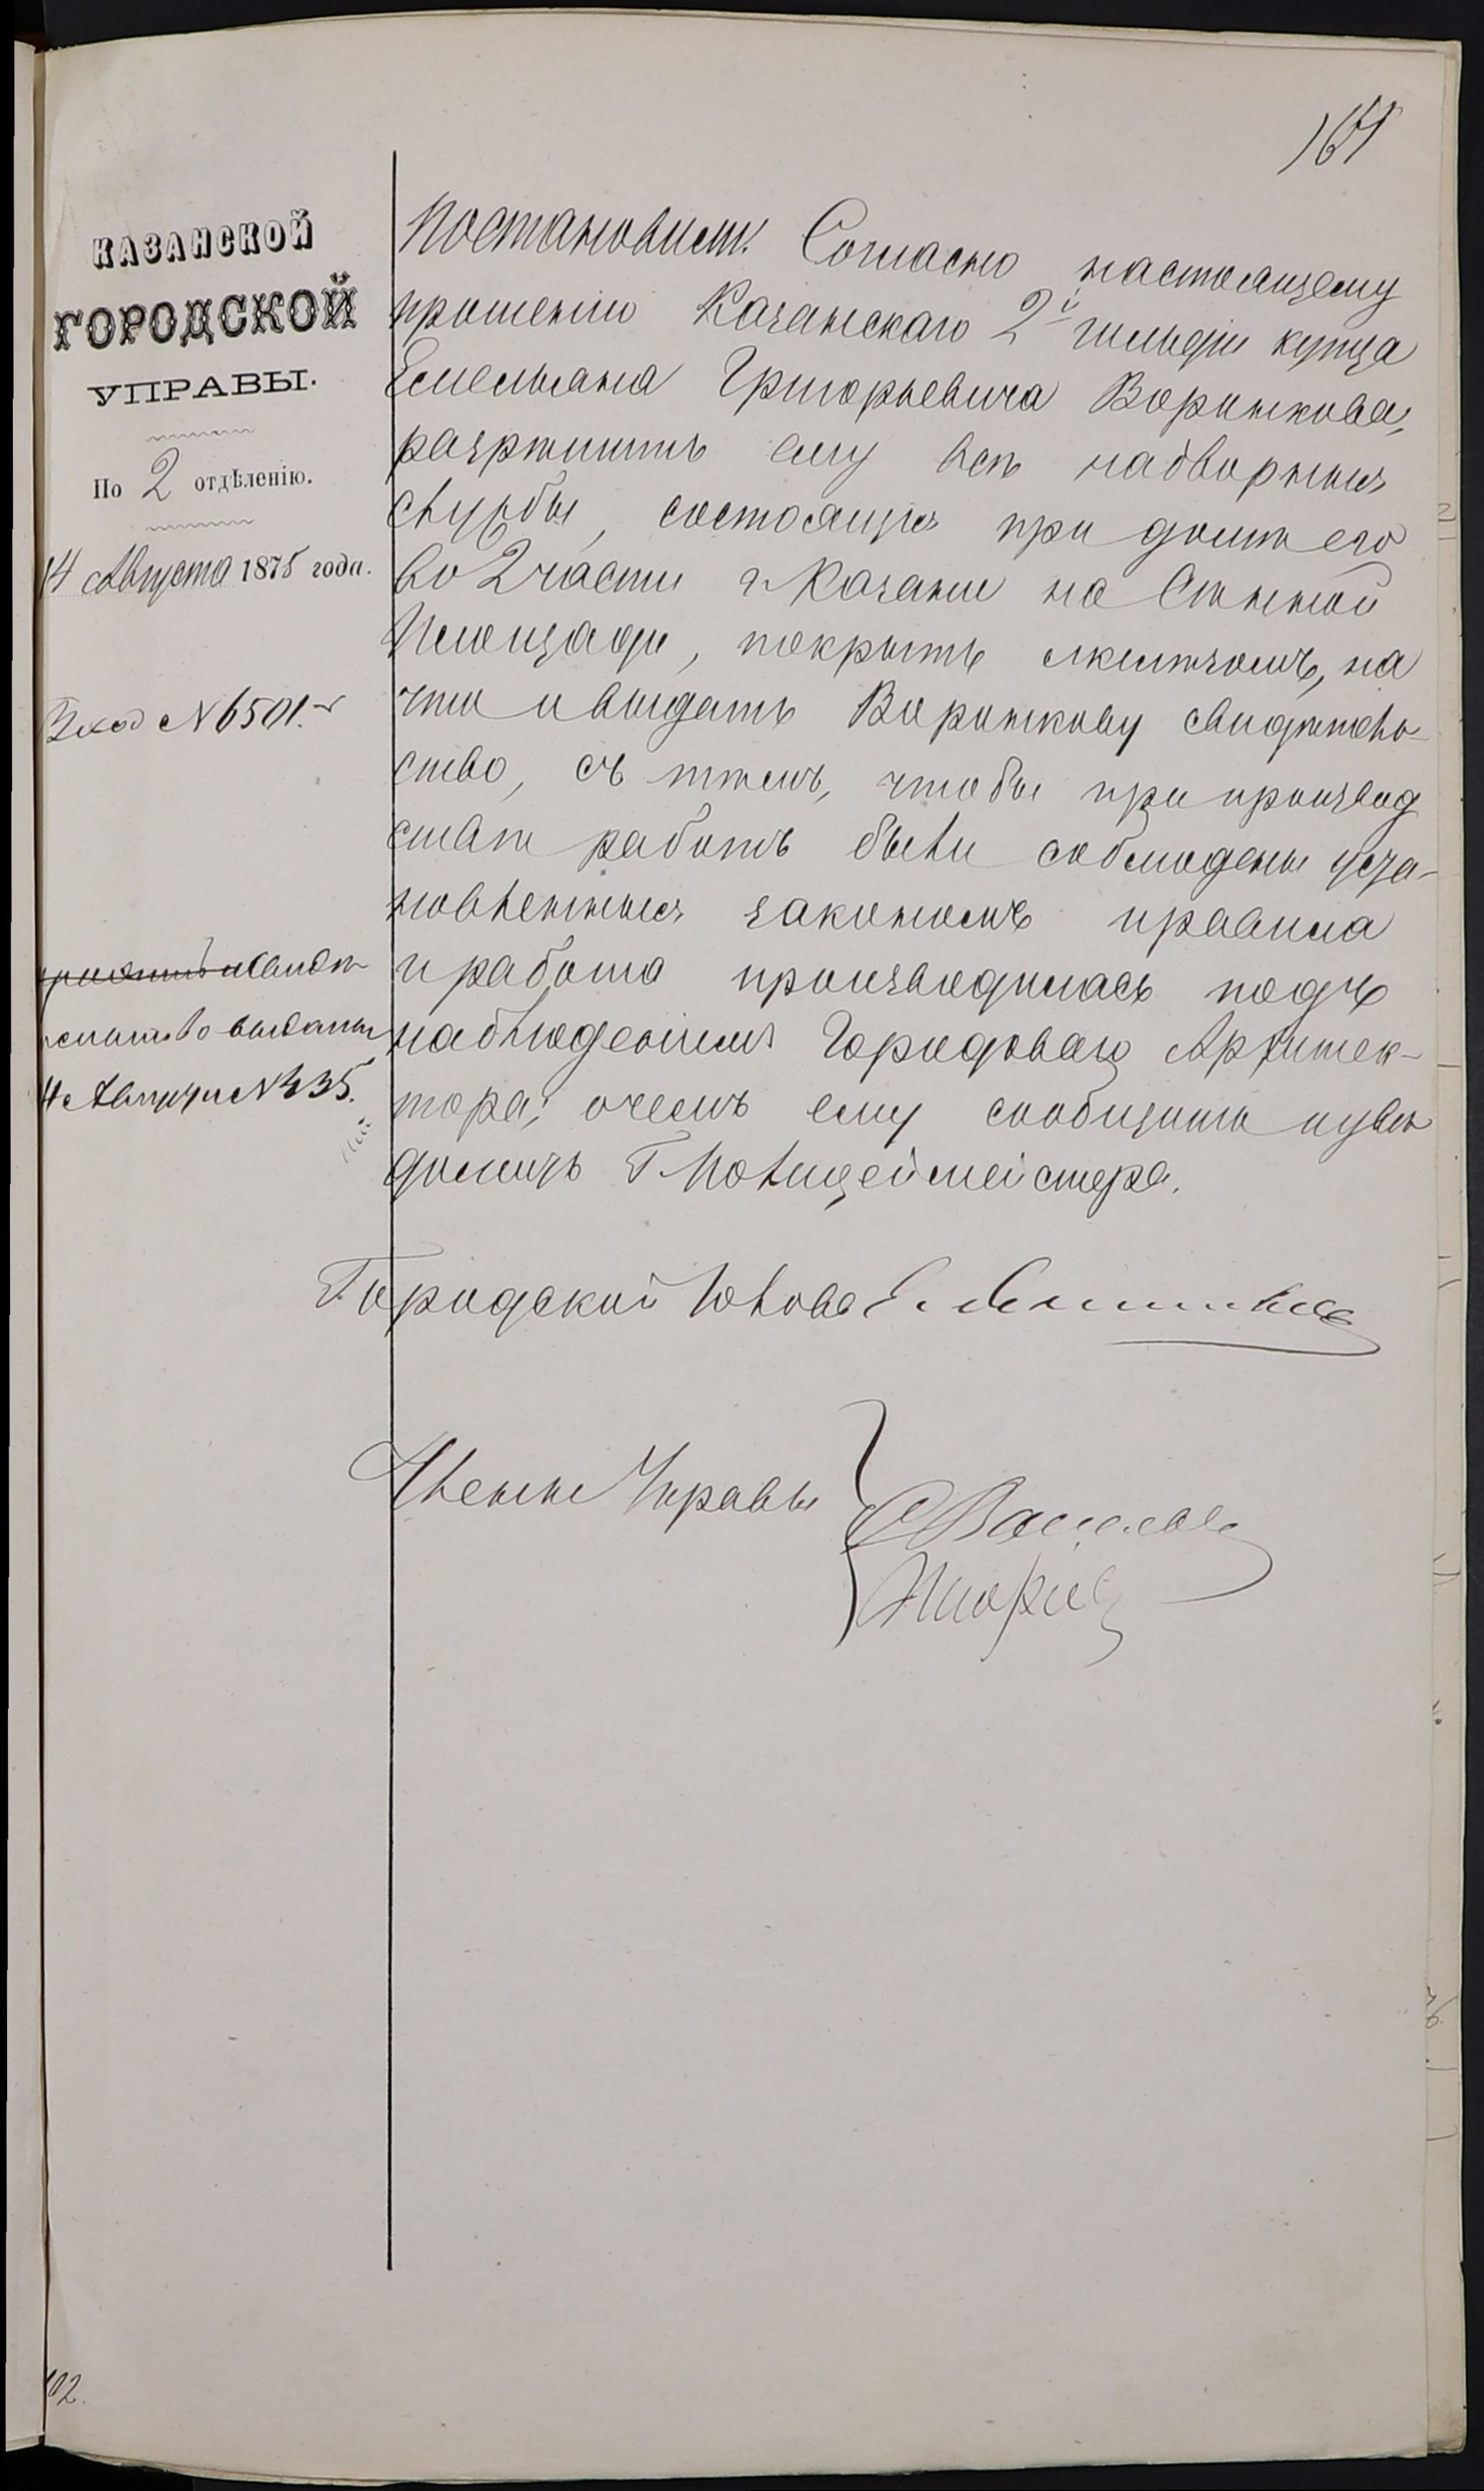 КАЗАНСКОЙ
ГОРОДСКОЙ
УПРАВЫ.
По 2 отдѣленію.
14 Августа 1875 года.
Вход №6501.
свидѣ-
тельство выдано
Августа №335.
Постановили: Согласно настоящему
прошенію Казанскаго 2й гильдіи купца
Емельяна Григорьевича Воронкова,
разрѣшить ему всѣ надворныя
службы, состоящія при домѣ его
во 2 части г. Казани на Сѣнной
Площади, покрыть желѣзомъ, на
что и выдать Воронкову свидѣтель-
ство, съ тѣмъ, чтобы при производ
ствѣ работъ были соблюдены уста-
новленныя закономъ правила
и работа производилась подъ
наблюденіемъ Городоваго Архитек-
тора; о чемъ ему сообщить и увѣ
домить Г. Полицеймейстера.
Городской Голова
Члены Управы